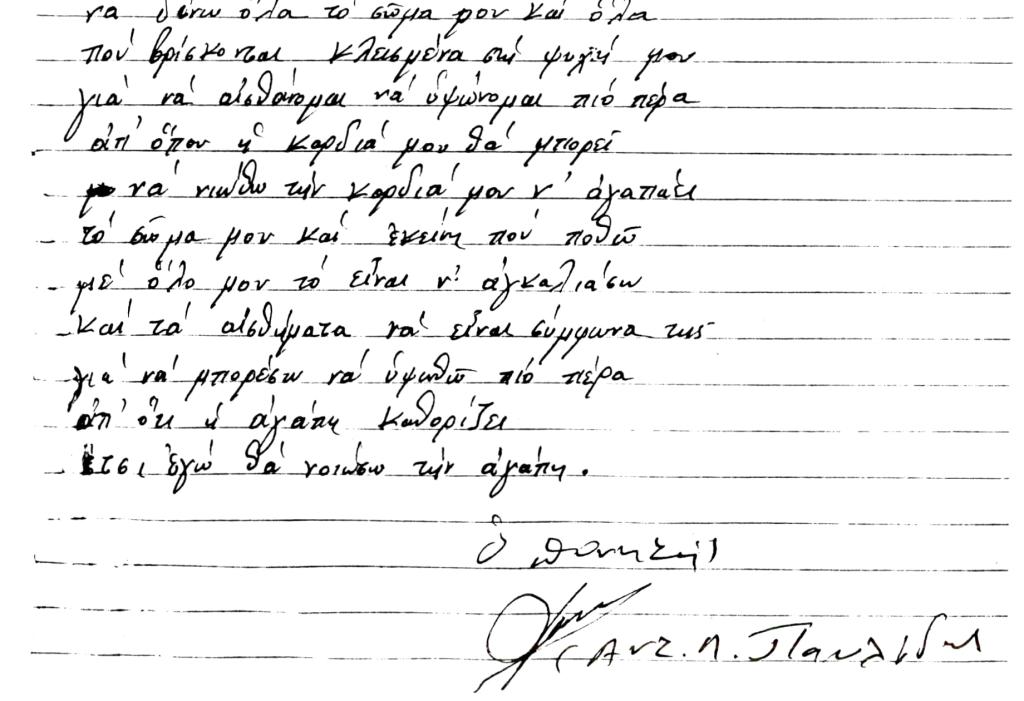 νά δίνω ὅλα τό σῶμα μου καί ὅλα
πού βρίσκονται κλεισμένα στή ψυχή μου
γιά νά αἰσθάνομαι νά ὑψώνομαι πιό πέρα
ἀπ' ὅπου ἡ καρδιά μου θά μπορεῖ
νά νιώθω τήν καρδιά μου ν' ἀγαπάει
τό σῶμα μου καί ἐκείνη πού ποθῶ
μέ ὅλο μου τό εἶναι ν' ἀγκαλιάσω
καί τά αἰσθήματα νά εἶναι σύμφωνα της
γιά νά μπορέσω νά ὑψωθῶ πιό πέρα
ἀπ' ὅτι ἡ ἀγάπη καθορίζει
ἔτσι ἐγώ θά νοιώσω τήν ἀγάπη.
ὁ ποιητής
(Αντ. Λ. Παυλίδης